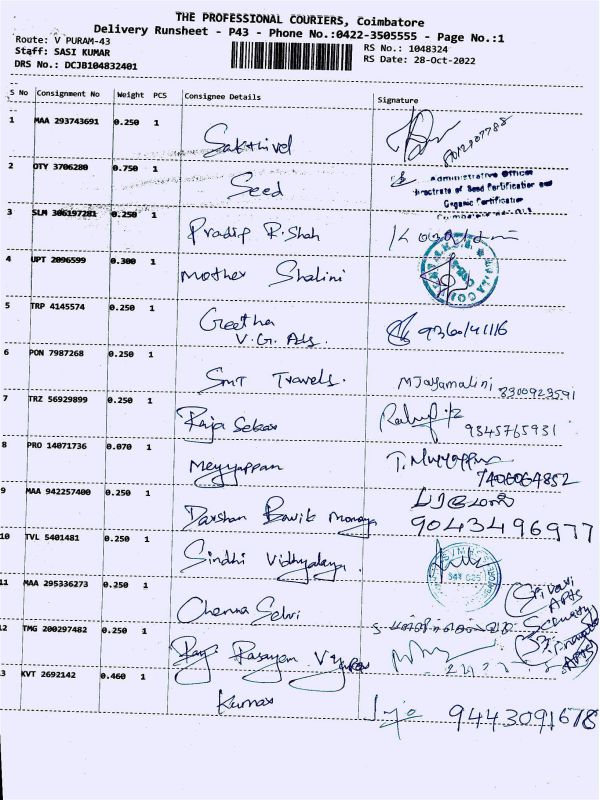 THE PROFESSIONAL COURIERS, Coimbatore
Delivery Runsheet - P43 - Phone No.:0422-3505555 - Page No.:1
Route: V PURAM-43
Staff: SASI KUMAR
DRS No.: DCJB104832401
RS No.: 1048324
RS Date: 28-Oct-2022
S No Consignment No Weight PCS Consignee Details Signature
1 MAA 293743691 0.250 1 Sakthivel
2 OTY 3706280 0.750 1 Seed
Administrative Officer
Directorate of Seed Certification and
Organic Certification
3 SLM 306197281 0.250 1 Pradip R. Shah
4 UPT 2096599 0.300 1 Mother Shalini
5 TRP 4145574 0.250 1 Geetha
V.G. Ads.
9360141116
6 PON 7987268 0.250 1 SMT Travels. M Jayamalini 8300923591
7 TRZ 56929899 0.250 1 Raja Sekar 9345765931
8 PRO 14071736 0.070 1 Meyyappan T. Meyyappan
7406064852
9 MAA 942257400 0.250 1 Darshan Bawik
9043496977
10 TVL 5401481 0.250 1 Sindhi Vidhyalaya.
11 MAA 295336273 0.250 1 Chenna Selvi
Srivari
Apts
Security
12 TMG 200297482 0.250 1 Raja Rasayan
13 KVT 2692142 0.460 1 Kumar
9443091678